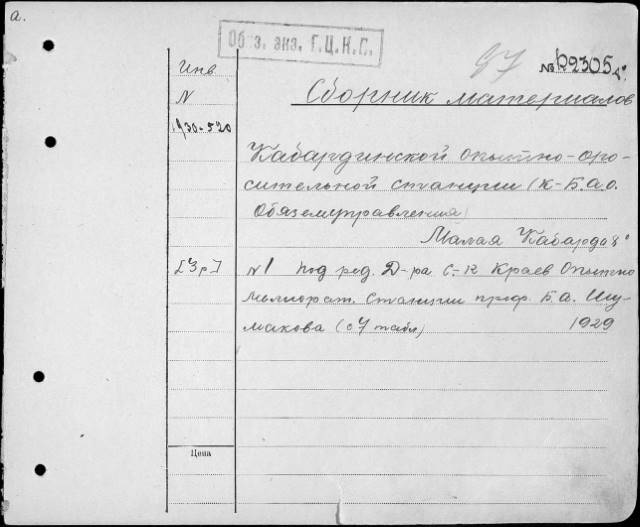 а.
Обяз. экз. Г.Ц.К.П.
97 № Р2305
Инв.
N
1930-520
Сборник материалов
Кабардинской опытно-оро-
сительной станции (К-Б.а.о.
Облземуправления)
Малая Кабарда 8°
[3р]
N1 Под ред. Д-ра С-К Краев Опытно
Мелиорат. Станции проф. Б.А. Шу-
макова (с 7 табл) 1929
Цена